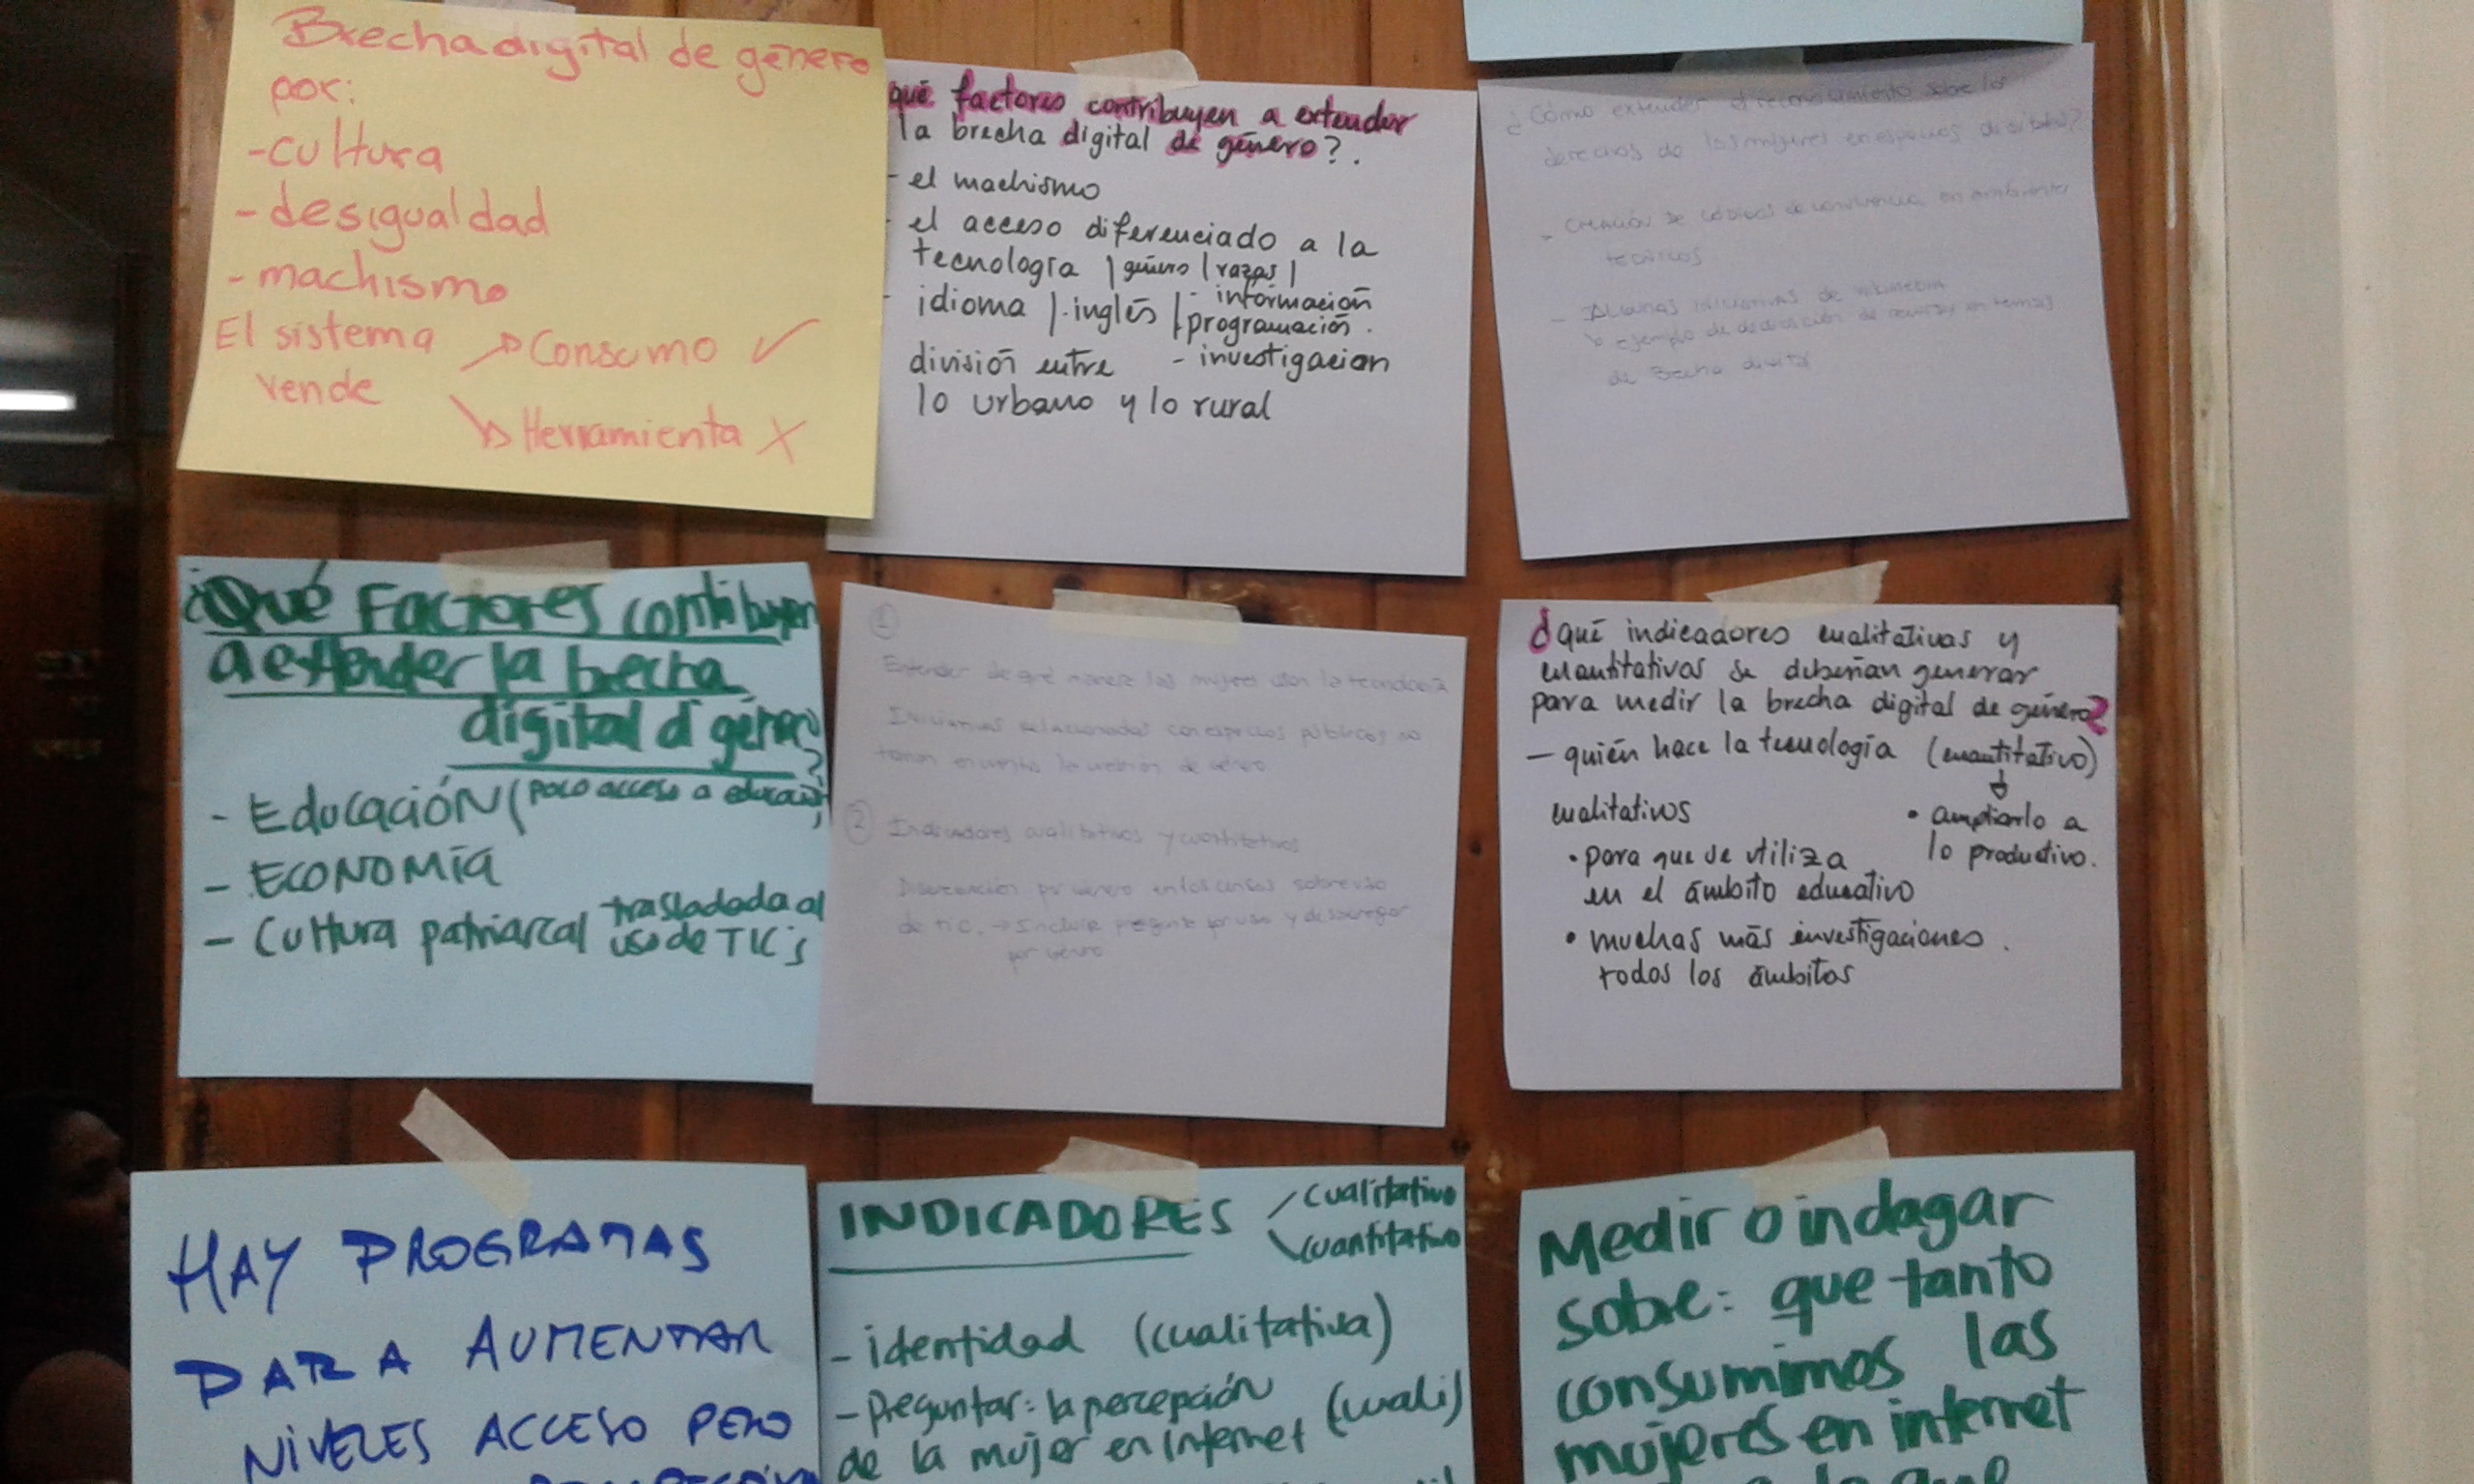 Brecha digital de género
por:
- cultura
- desigualdad
- machismo
El sistema vende
→ Consumo ✓
→ Herramienta X
qué factores contribuyen a extender
la brecha digital de género?.
- el machismo
- el acceso diferenciado a la
tecnología | género | razas |
- idioma | . inglés | - información
- programación.
- investigacion
división entre
lo urbano y lo rural
¿Cómo extender el reconocimiento sobre los
derechos de las mujeres en espacios digitales?
- Creación de códigos de convivencia en ambientes
técnicos
- Algunas iniciativas de wikimedia
ejemplo de de en temas
de Brecha digital
¿Qué Factores contribuyen
a extender la brecha
digital d género?
- Educación (poco acceso a educación)
- ECONOMÍA
- Cultura patriarcal trasladada al
uso de TIC's
1
Entender de qué manera las mujeres usan la tecnología
Iniciativas relacionadas con espacios públicos no
toman en cuenta la de género
2 Indicadores cualitativos y cuantitativos
por género en los censos sobre uso
de TIC. → Incluir por uso y desagregar
por género
¿qué indicadores cualitativas y
cuantitativas se deberían generar
para medir la brecha digital de género?
- quién hace la tecnología (cuantitativo)
• ampliarlo a
lo productivo.
cualitativos
• para que se utiliza
en el ámbito educativo
• muchas más investigaciones.
todos los ámbitos
HAY PROGRAMAS
PARA AUMENTAR
NIVELES ACCESO PERO
INDICADORES
cualitativo
cuantitativo
- identidad (cualitativa)
- Preguntar: la percepción
de la mujer en internet (cuali)
Medir o indagar
sobre: que tanto
consumimos las
mujeres en internet